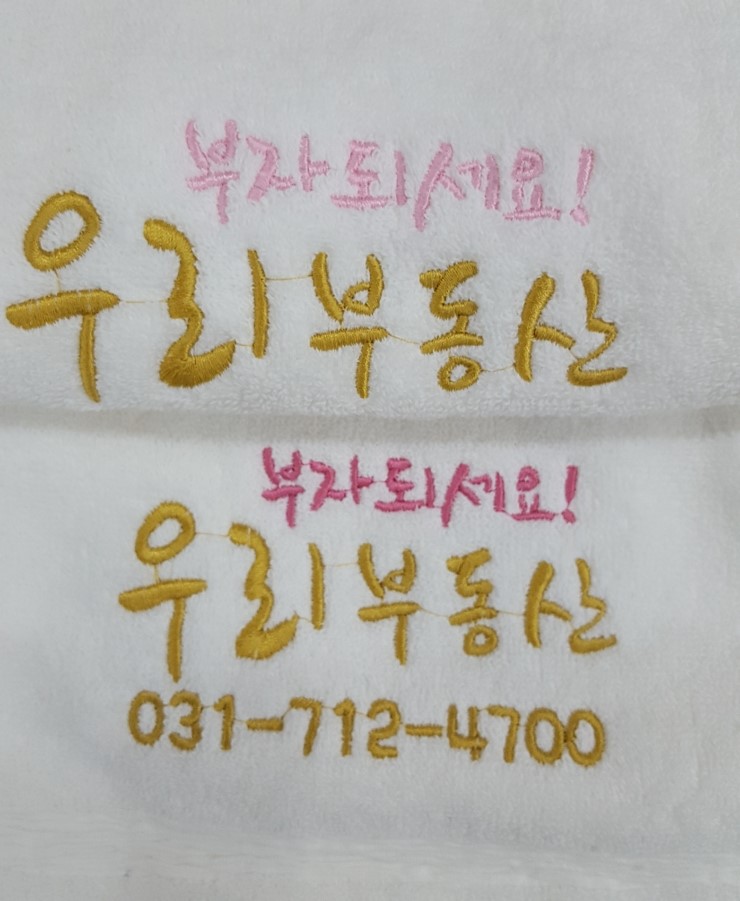 부자되세요!
우리부동산
부자되세요!
우리부동산
031-712-4700